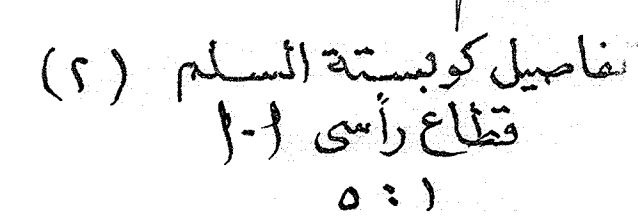 تفاصيل كوبستة السلم (٢)
قطاع رأسى أ-أ
١ : ٥